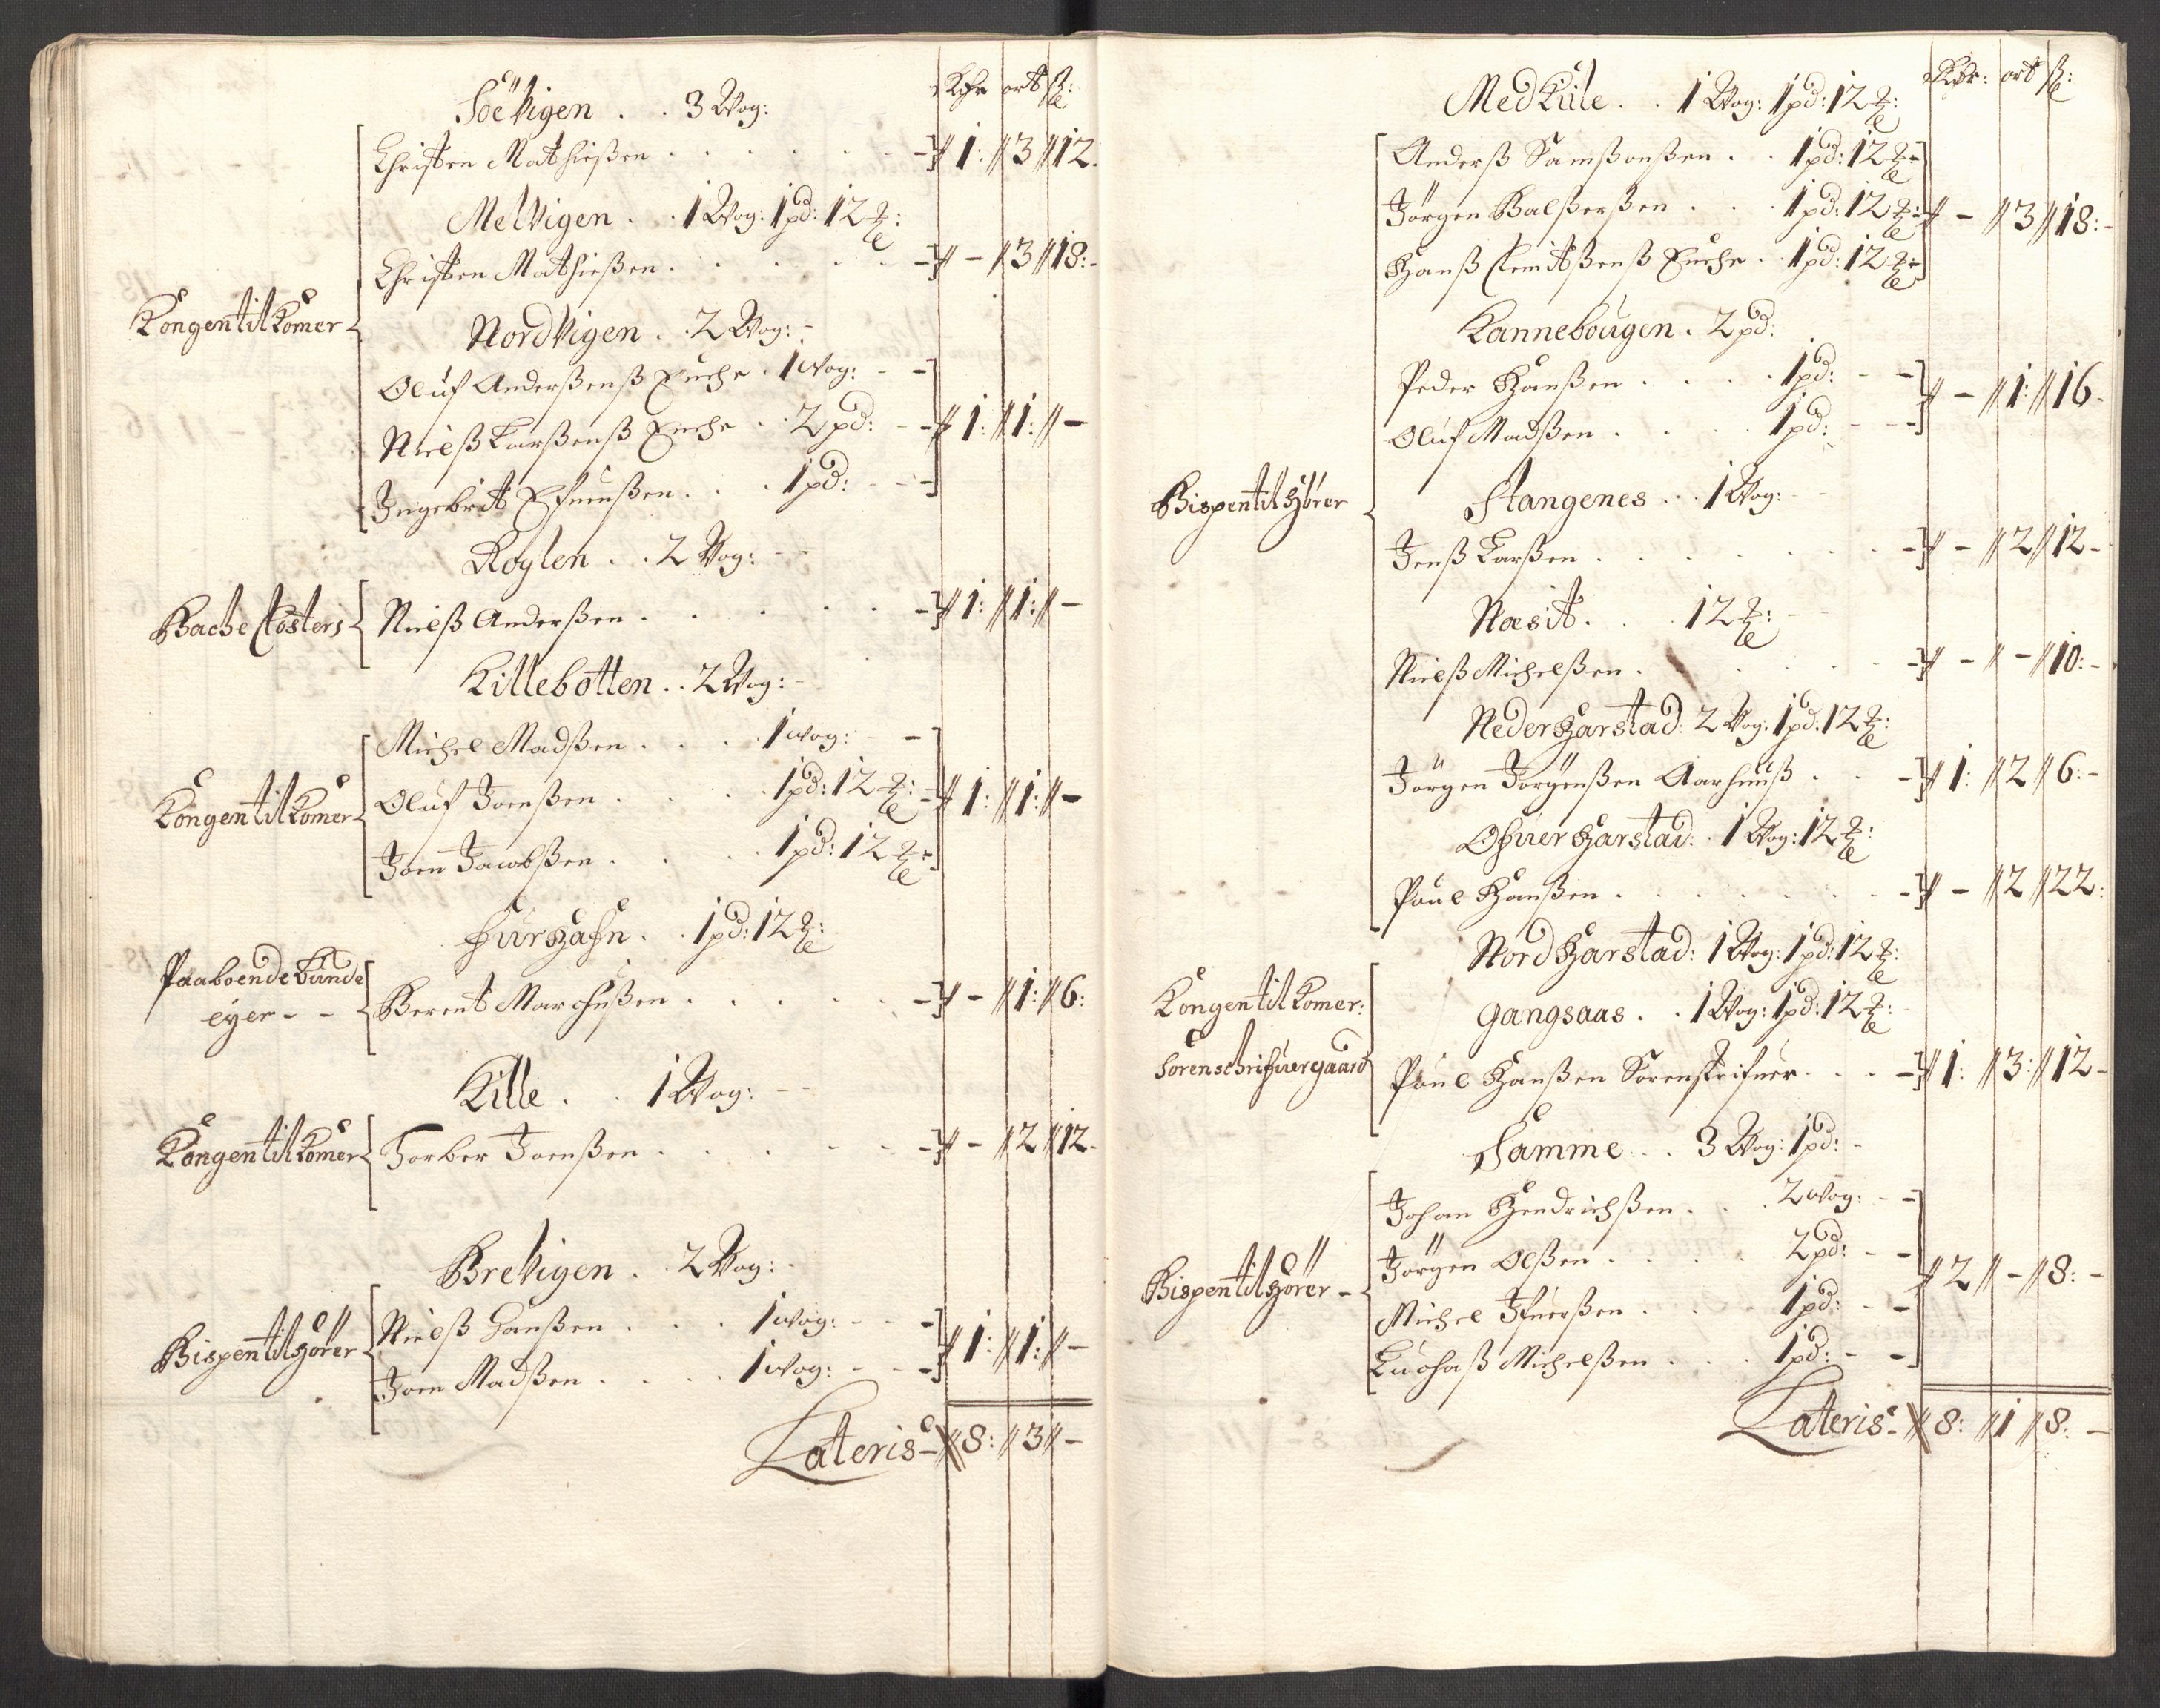 Rdr ort ß:
Söevigen . . 3 Wog:
Christen Mathießen . . . . . . 1: 3 12.
Melvigen . . 1 Wog: 1 pd: 12 ℔:
Christen Mathießen . . . . . . - 3 18:-
Kongen til komer
Nordvigen . . 2 Wog: -
Oluf Anderßenß Enche . 1 wog: - -
Nielß Larßenß Enche . . 2 pd: - - 1: 1: -
Ingebrit . . . 1 pd: - -
Röylen . . 2 Wog: - -
Bache Closters
Nielß Anderßen . . . . . . 1: 1: -
Killebotten . . 2 Wog: -
Michel Madßen . . . . 1 wog: - -
Kongen til komer
Oluf Joenßen . . . . 1 pd: 12 ℔: - 1: 1: -
Joen Jacobßen . . . . 1 pd: 12 ℔:
. . 1 pd: 12 ℔:
Paaboende Bunde
eyer - -
Berent Marchußen . . . . . - 1: 6:
Kille . . 1 Wog: - -
Kongen til komer
Torber Joenßen . . . . . . - 2 12.
Brevigen . . 2 Wog: -
Bispen tilhörer
Nielß Hanßen . . . 1 wog: - - -
1: 1: -
Joen Madßen . . . . 1 wog: - - -
Lateris - 8: 3 -
Rdr: ort ß:
Medkiile . . 1 Wog: 1 pd: 12 ℔:
Anderß Samßonßen . . 1 pd: 12 ℔ -
Jörgen Balßerßen . . . 1 pd: 12 ℔ - - 3 18: -
Hanß Clemitßenß Enche . . 1 pd: 12 ℔ -
Kannebougen . 2 pd:
Peder Hanßen . . . . 1 pd: - -
- 1: 16 -
Oluf Madßen . . . . 1 pd: - -
Bispen tilhörer
Stangenes . . . 1 Wog: - -
Jenß Larßen . . . . . . . - 2 12 -
Næsit . . . 12 ℔: - -
Nielß Michelßen . . . . . . - - 10: -
Neder Harstad: 2 Wog: 1 pd: 12 ℔:
Jörgen Jörgenßen Aarhuuß . . . 1: 2 6: -
Ofuer Harstad: . 1 Wog: 12 ℔:
Poul Hanßen . . . . . . . - 2 22:
Nord Harstad: 1 Wog: 1 pd: 12 ℔:
Kongen til komer:
Sorenschrifuergaard
Gangsaas . . 1 Wog: 1 pd: 12 ℔: -
Poul Hanßen Sorenskrifuer . . . 1: 3: 12 -
Samme . . 3 Wog: 1 pd: -
Johan Hendrichßen . . . 2 wog: - -
Jörgen Olßen . . . . . 2 pd: - -
Bispen tilhörer -
2 - 8: -
Michel Ifuerßen . . . . 1 pd: - -
Luchaß Michelßen . . . 1 pd: - -
Lateris - 8: 1 8: -